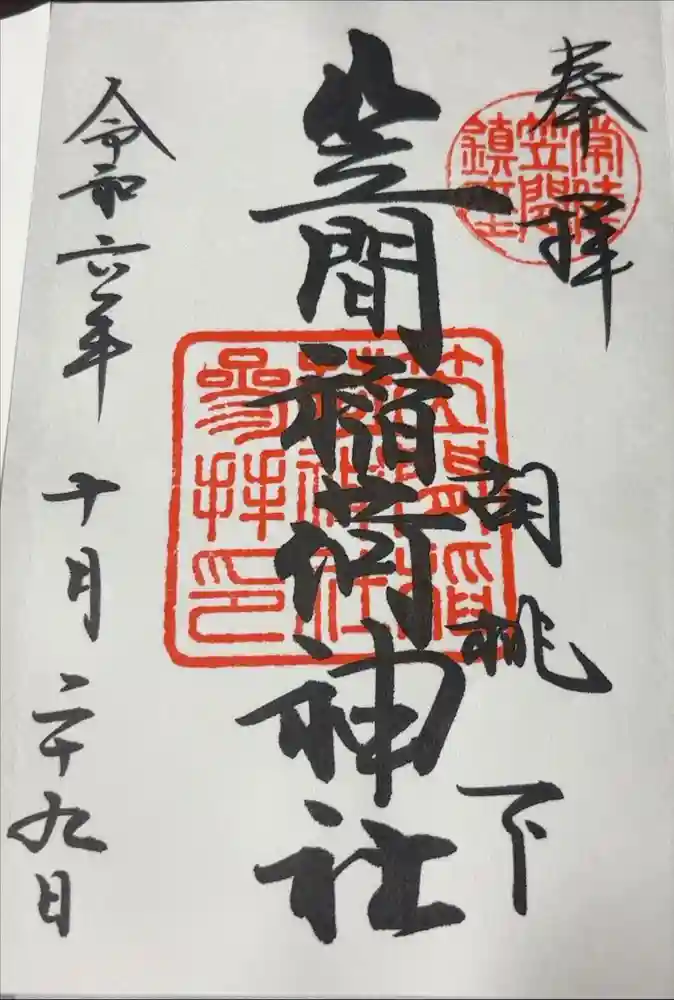 奉拝
常陸
笠間
鎮座
胡桃下
笠間稲荷神社
笠間稲
荷神社
参拝印
令和六年十月二十九日